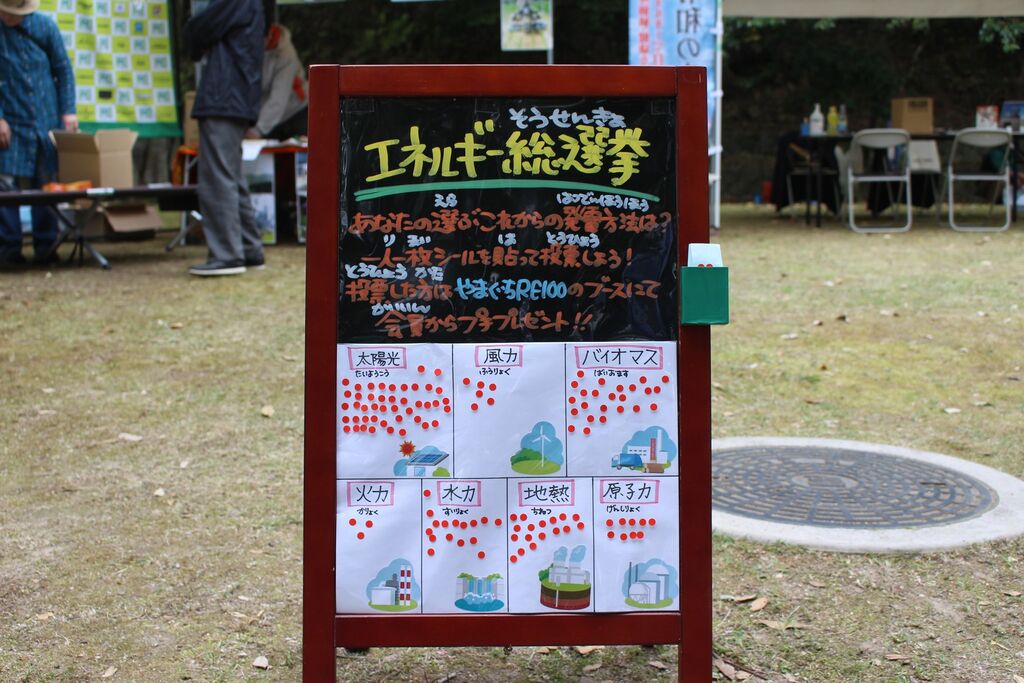 そうせんきょ
エネルギー総選挙
えら はつでんほうほう
あなたの選ぶこれからの発電方法は?
り まい は とうひょう
一人一枚シールを貼って投票しよう!
とうひょう かた
投票した方はやまぐちRE100のブースにて
かいいん
会員からプチプレゼント!!
太陽光
たいようこう
風力
ふうりょく
バイオマス
ばいおます
火力
かりょく
水力
すいりょく
地熱
ちねつ
原子力
げんしりょく
和の